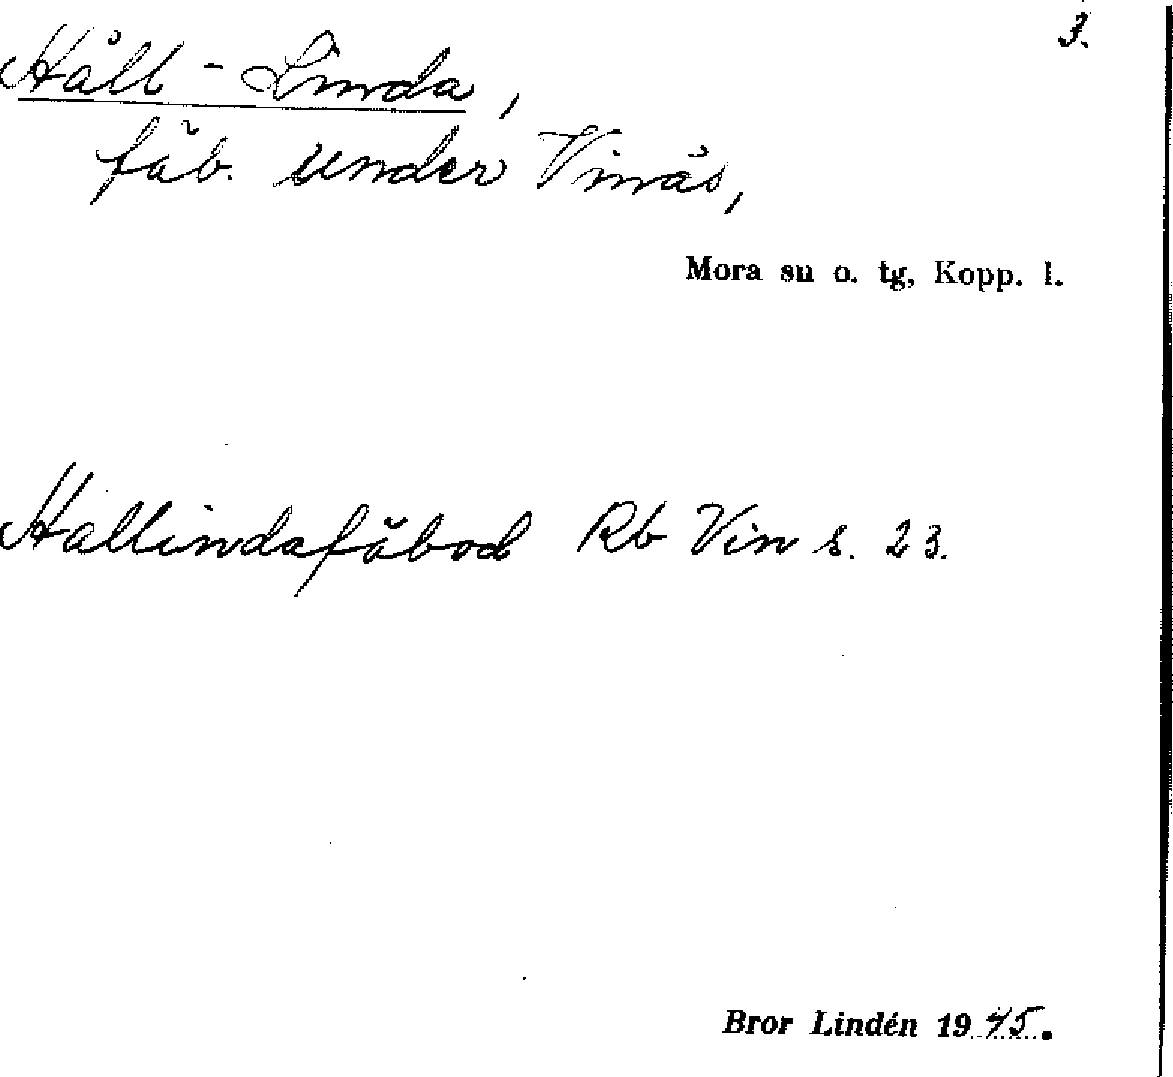 3.
Håll-Linda,
fäb. under Vinäs,
Mora sn o. tg, Kopp. l.
Hallindafäbod Rb Vin s. 23.
Bror Lindén 1945.